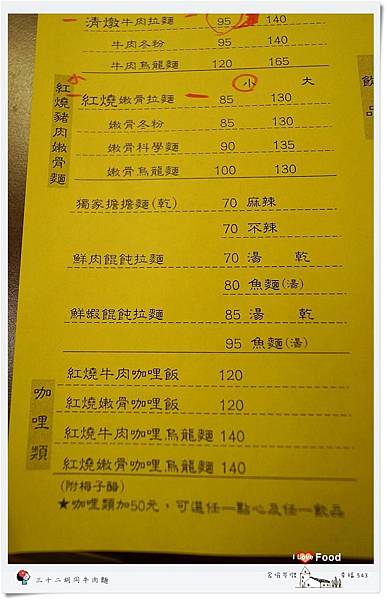 清燉牛肉拉麵 95 140
牛肉冬粉 95 140
牛肉烏龍麵 120 165
小 大
紅燒豬肉嫩骨麵
紅燒嫩骨拉麵 85 130
嫩骨冬粉 85 130
嫩骨科學麵 90 135
嫩骨烏龍麵 100 130
飲品
獨家擔擔麵(乾) 70 麻辣
70 不辣
鮮肉餛飩拉麵 70 湯 乾
80 魚麵(湯)
鮮蝦餛飩拉麵 85 湯 乾
95 魚麵(湯)
咖哩類
紅燒牛肉咖哩飯 120
紅燒嫩骨咖哩飯 120
紅燒牛肉咖哩烏龍麵 140
紅燒嫩骨咖哩烏龍麵 140
(附梅子醋)
★咖哩類加50元，可選任一點心及任一飲品
I Love Food
三十二胡同牛肉麵
幸福 543